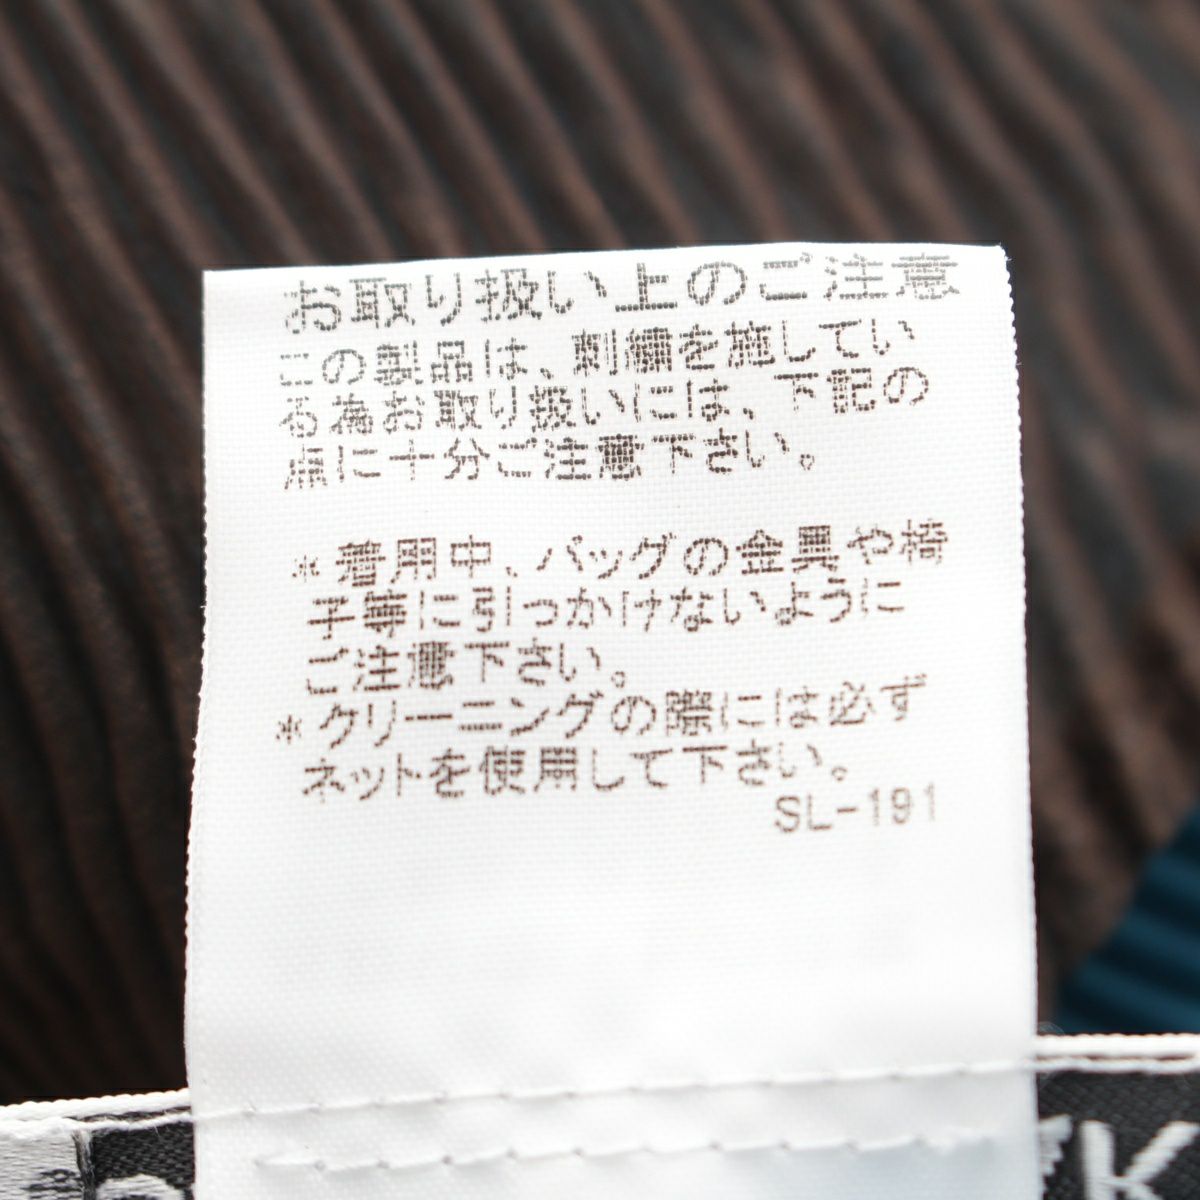 お取り扱い上のご注意
この製品は、刺繍を施してい
る為お取り扱いには、下記の
点に十分ご注意下さい。
*着用中、バッグの金具や椅
子等に引っかけないように
ご注意下さい。
*クリーニングの際には必ず
ネットを使用して下さい。
SL-191
K